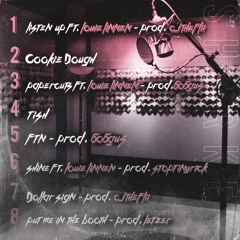 1 listen up ft. louie linnen - prod. cjthefiji
2 Cookie Dough
3 papercuts ft. louie linnen - prod. 808gus
4 Tish
5 FTN - prod. 808gus
6 shine ft. louie linnen - prod. stoptinyrick
7 Dollar sign - prod. cjthefiji
8 put me in the booth - prod. letzer